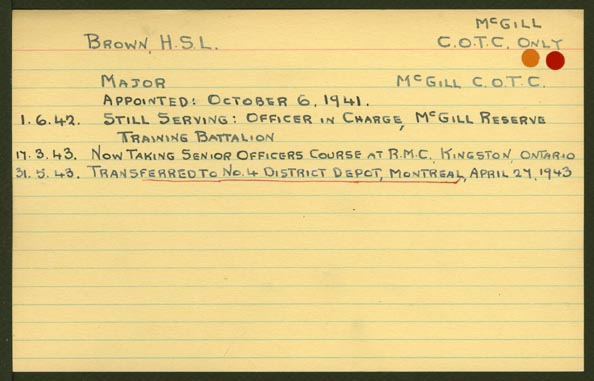 McGILL
BROWN, H.S.L. C.O.T.C. ONLY
MAJOR McGILL C.O.T.C.
APPOINTED: OCTOBER 6, 1941.
1.6.42. STILL SERVING: OFFICER IN CHARGE, McGILL RESERVE
TRAINING BATTALION
17.3.43. NOW TAKING SENIOR OFFICERS COURSE AT R.M.C. KINGSTON, ONTARIO
31.5.43. TRANSFERRED TO No. 4 DISTRICT DEPOT, MONTREAL, APRIL 27, 1943